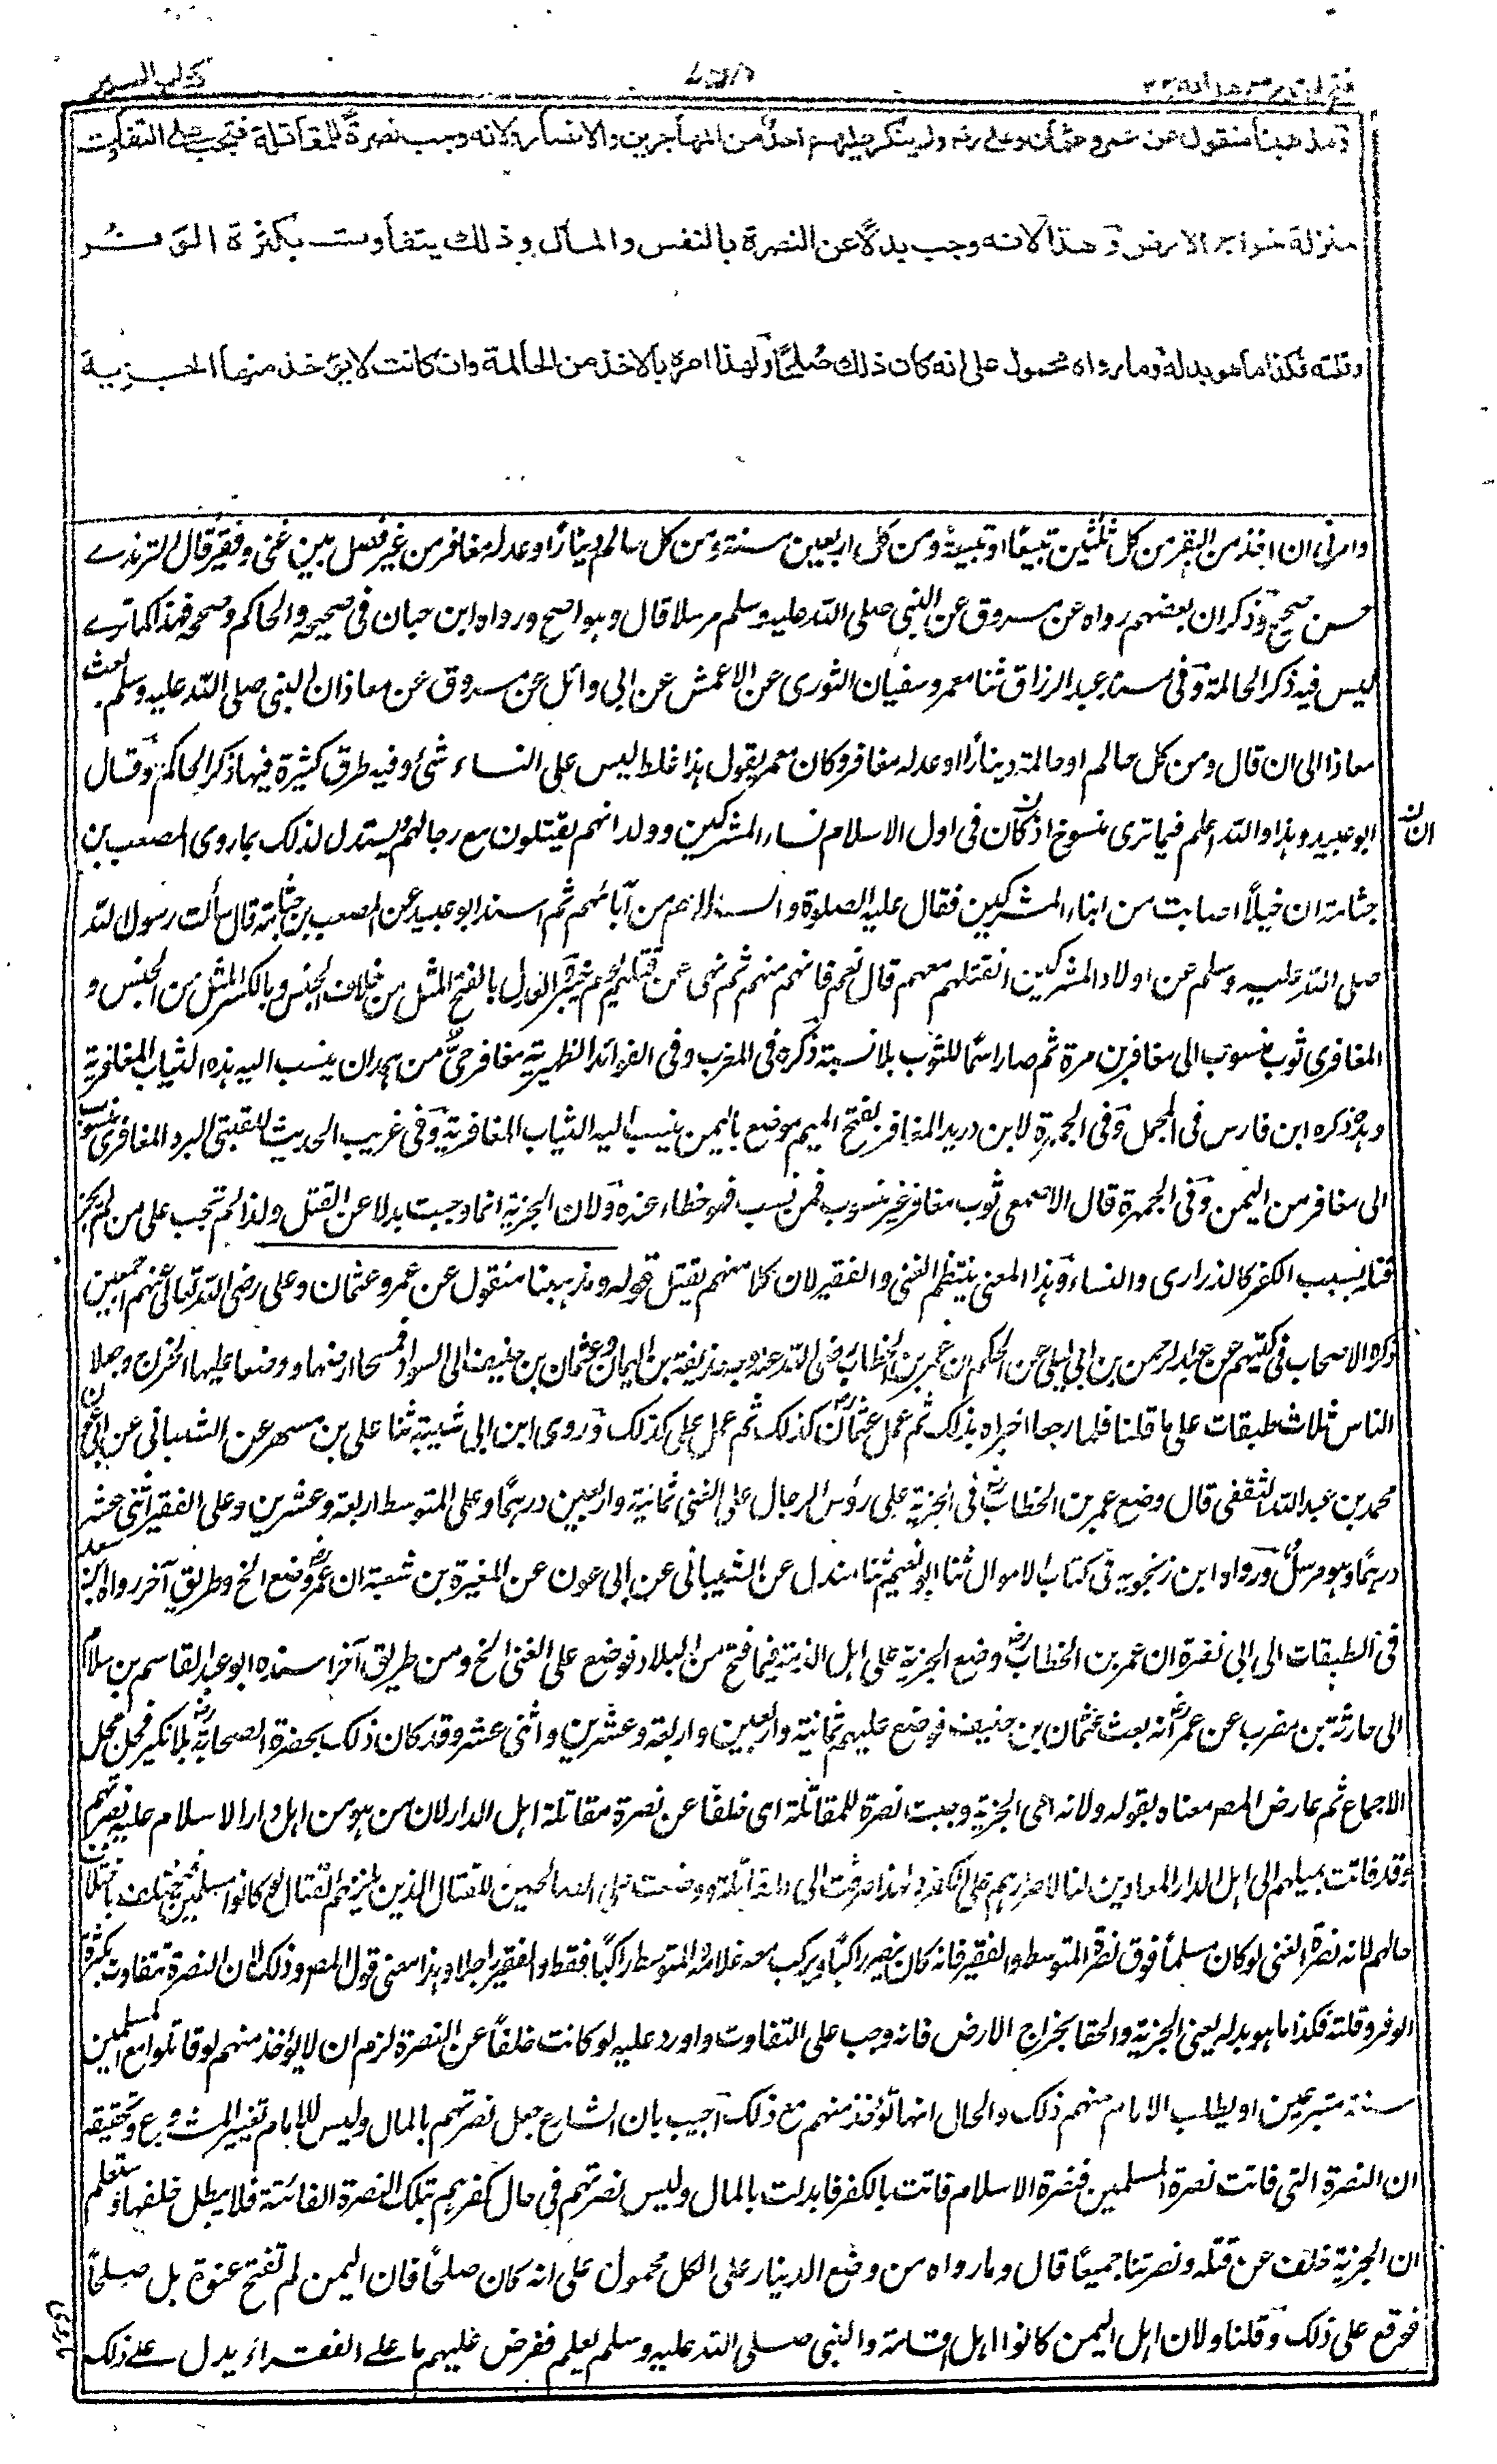 كتاب السير
ومذهبنا منقول عن عمر وعثمان وعلى رضه ولم ينكر عليهم احد من المهاجرين والانصار ولانه وجب نصرة للمقاتلة فتجب على التفاوت
بمنزلة خراج الارض وهذا لانه وجب بدلا عن النصرة بالنفس والمال وذلك يتفاوت بكثرة الوفر
وقلته فكذا ما هو بدله وما رواه محمول على انه كان ذلك صلحا ولهذا امره بالاخذ من الحالمة وان كانت لا يؤخذ منها الجزية
وامرنى ان اخذ من البقر من كل ثلثين تبيعا او تبيعة ومن كل اربعين مسنة ومن كل حالم دينارا او عدله معافر من غير فصل بين غنى وفقير قال الترمذے
حسن صحيح وذكر ان بعضهم رواه عن مسروق عن النبى صلى الله عليه وسلم مرسلا قال وهو اصح ورواه ابن حبان فى صحيحه والحاكم وصححه فهذا كما ترے
ليس فيه ذكر الحالمة وفى مسند عبد الرزاق ثنا معمر وسفيان الثورى عن الاعمش عن ابى وائل عن مسروق عن معاذ ان النبى صلى الله عليه وسلم بعث
معاذا الى ان قال ومن كل حالم او حالمة دينارا او عدله معافر وكان معمر يقول هذا غلط ليس على النساء شئ وفيه طرق كثيرة فيها ذكر الحاكم وقال
ابو عبيد وهذا والله اعلم فيما نرى منسوخ اذ كان فى اول الاسلام نساء المشركين وولدانهم يقتلون مع رجالهم ويستدل لذلك بما روى المصعب بن
جثامة ان خيلا اصابت من ابناء المشركين فقال عليه الصلوة والسلام هم من آبائهم ثم اسند ابو عبيد عن المصعب بن جثامة قال سألت رسول الله
صلى الله عليه وسلم عن اولاد المشركين انقتلهم معهم قال نعم فانهم منهم ثم نهى عن قتلهم يوم خيبر والعدل بالفتح المثل من خلاف الجنس وبالكسر المثل من الجنس و
المعافرى ثوب منسوب الى معافر بن مرة ثم صار اسما للثوب بلا نسبة ذكره فى المغرب وفى الفوائد الظهيرية معافر حى من همدان ينسب اليه هذه الثياب المعافرية
وهو ذكره ابن فارس فى المجمل وفى الجمهرة لابن دريد المعافر بفتح الميم موضع باليمن ينسب اليه الثياب المعافرية وفى غريب الحديث للقتبى البرد المعافرى منسوب
الى معافر من اليمن وفى الجمهرة قال الاصمعى ثوب معافر غير منسوب فمن نسب فهو خطاء عنده ولان الجزية انما وجبت بدلا عن القتل ولذا لم تجب على من لم يجز
قتله بسبب الكفر كالذرارى والنساء وهذا المعنى ينتظم الغنى والفقير لان كلا منهم يقتل قوله ومذهبنا منقول عن عمر وعثمان وعلى رضى الله تعالى عنهم اجمعين
ذكره الاصحاب فى كتبهم عن عبد الرحمن بن ابى ليلى عن الحكم ان عمر بن الخطاب رضى الله عنه وجه حذيفة بن اليمان وعثمان بن حنيف الى السواد فمسحا ارضها ووضعا عليها الخراج وجعلا
الناس ثلاث طبقات على ما قلنا فلما رجعا اخبراه بذلك ثم عمل عثمان كذلك ثم عمل على كذلك وروى ابن ابى شيبة ثنا على بن مسهر عن الشيبانى عن ابى عون
محمد بن عبد الله الثقفى قال وضع عمر بن الخطاب فى الجزية على رؤس الرجال على الغنى ثمانية واربعين درهما وعلى المتوسط اربعة وعشرين وعلى الفقير اثنى عشر
درهما وهو مرسل ورواه ابن زنجويه فى كتاب الاموال ثنا ابو نعيم ثنا مندل عن الشيبانى عن ابى عون عن المغيرة بن شعبة ان عمر وضع الخ وطريق آخر رواه ابن سعد
فى الطبقات الى ابى نضرة ان عمر بن الخطاب وضع الجزية على اهل الذمة فيما فتح من البلاد فوضع على الغنى الخ ومن طريق آخر اسنده ابو عبيد القاسم بن سلام
الى حارثة بن مضرب عن عمر انه بعث عثمان بن حنيف فوضع عليهم ثمانية واربعين واربعة وعشرين واثنى عشر وقد كان ذلك بحضرة الصحابة بلا نكير فحل محل
الاجماع ثم عارض المصـ معناه بقوله ولانه اى الجزية وجبت نصرة للمقاتلة اى خلفا عن نصرة مقاتلة اهل الدار لان من هو من اهل دار الاسلام عليه نصرتهم
وقد فاتت بميلهم الى اهل الدار المعادين لنا لاصرارهم على الكفر ولهذا صرفت الى المقاتلة ووضعت على الصالحين للقتال الذين يلزمهم القتال لو كانوا مسلمين فتختلف باختلاف
حالهم لانه نصرة الغنى لو كان مسلما فوق نصرة المتوسط والفقير فانه كان ينصر راكبا ويركب معه غلامه والمتوسط راكبا فقط والفقير راجلا وهذا معنى قول المصـ وذلك لان النصرة تتفاوت بكثرة
الوفر وقلته فكذا ما هو بدله يعنى الجزية والحقا بخراج الارض فانه وجب على التفاوت واورد عليه لو كانت خلفا عن النصرة لزم ان لا يؤخذ منهم لو قاتلوا مع المسلمين
سنة متبرعين او يطلب الامام منهم ذلك والحال انها تؤخذ منهم مع ذلك اجيب بان الشارع جعل نصرتهم بالمال وليس للامام تغيير المشروع وتحقيقه
ان النصرة التى فاتت نصرة المسلمين فنصرة الاسلام فاتت بالكفر فابدلت بالمال وليس نصرتهم فى حال كفرهم بتلك النصرة الفائتة فلا يبطل خلفها وستعلم
ان الجزية خلف عن قتله ونصرتنا جميعا قال وما رواه من وضع الدينار على الكل محمول على انه كان صلحا فان اليمن لم تفتح عنوة بل صلحا
فوقع على ذلك وقلنا ولان اهل اليمن كانوا اهل فاقة والنبى صلى الله عليه وسلم يعلم ففرض عليهم ما على الفقراء يدل علے ذلك